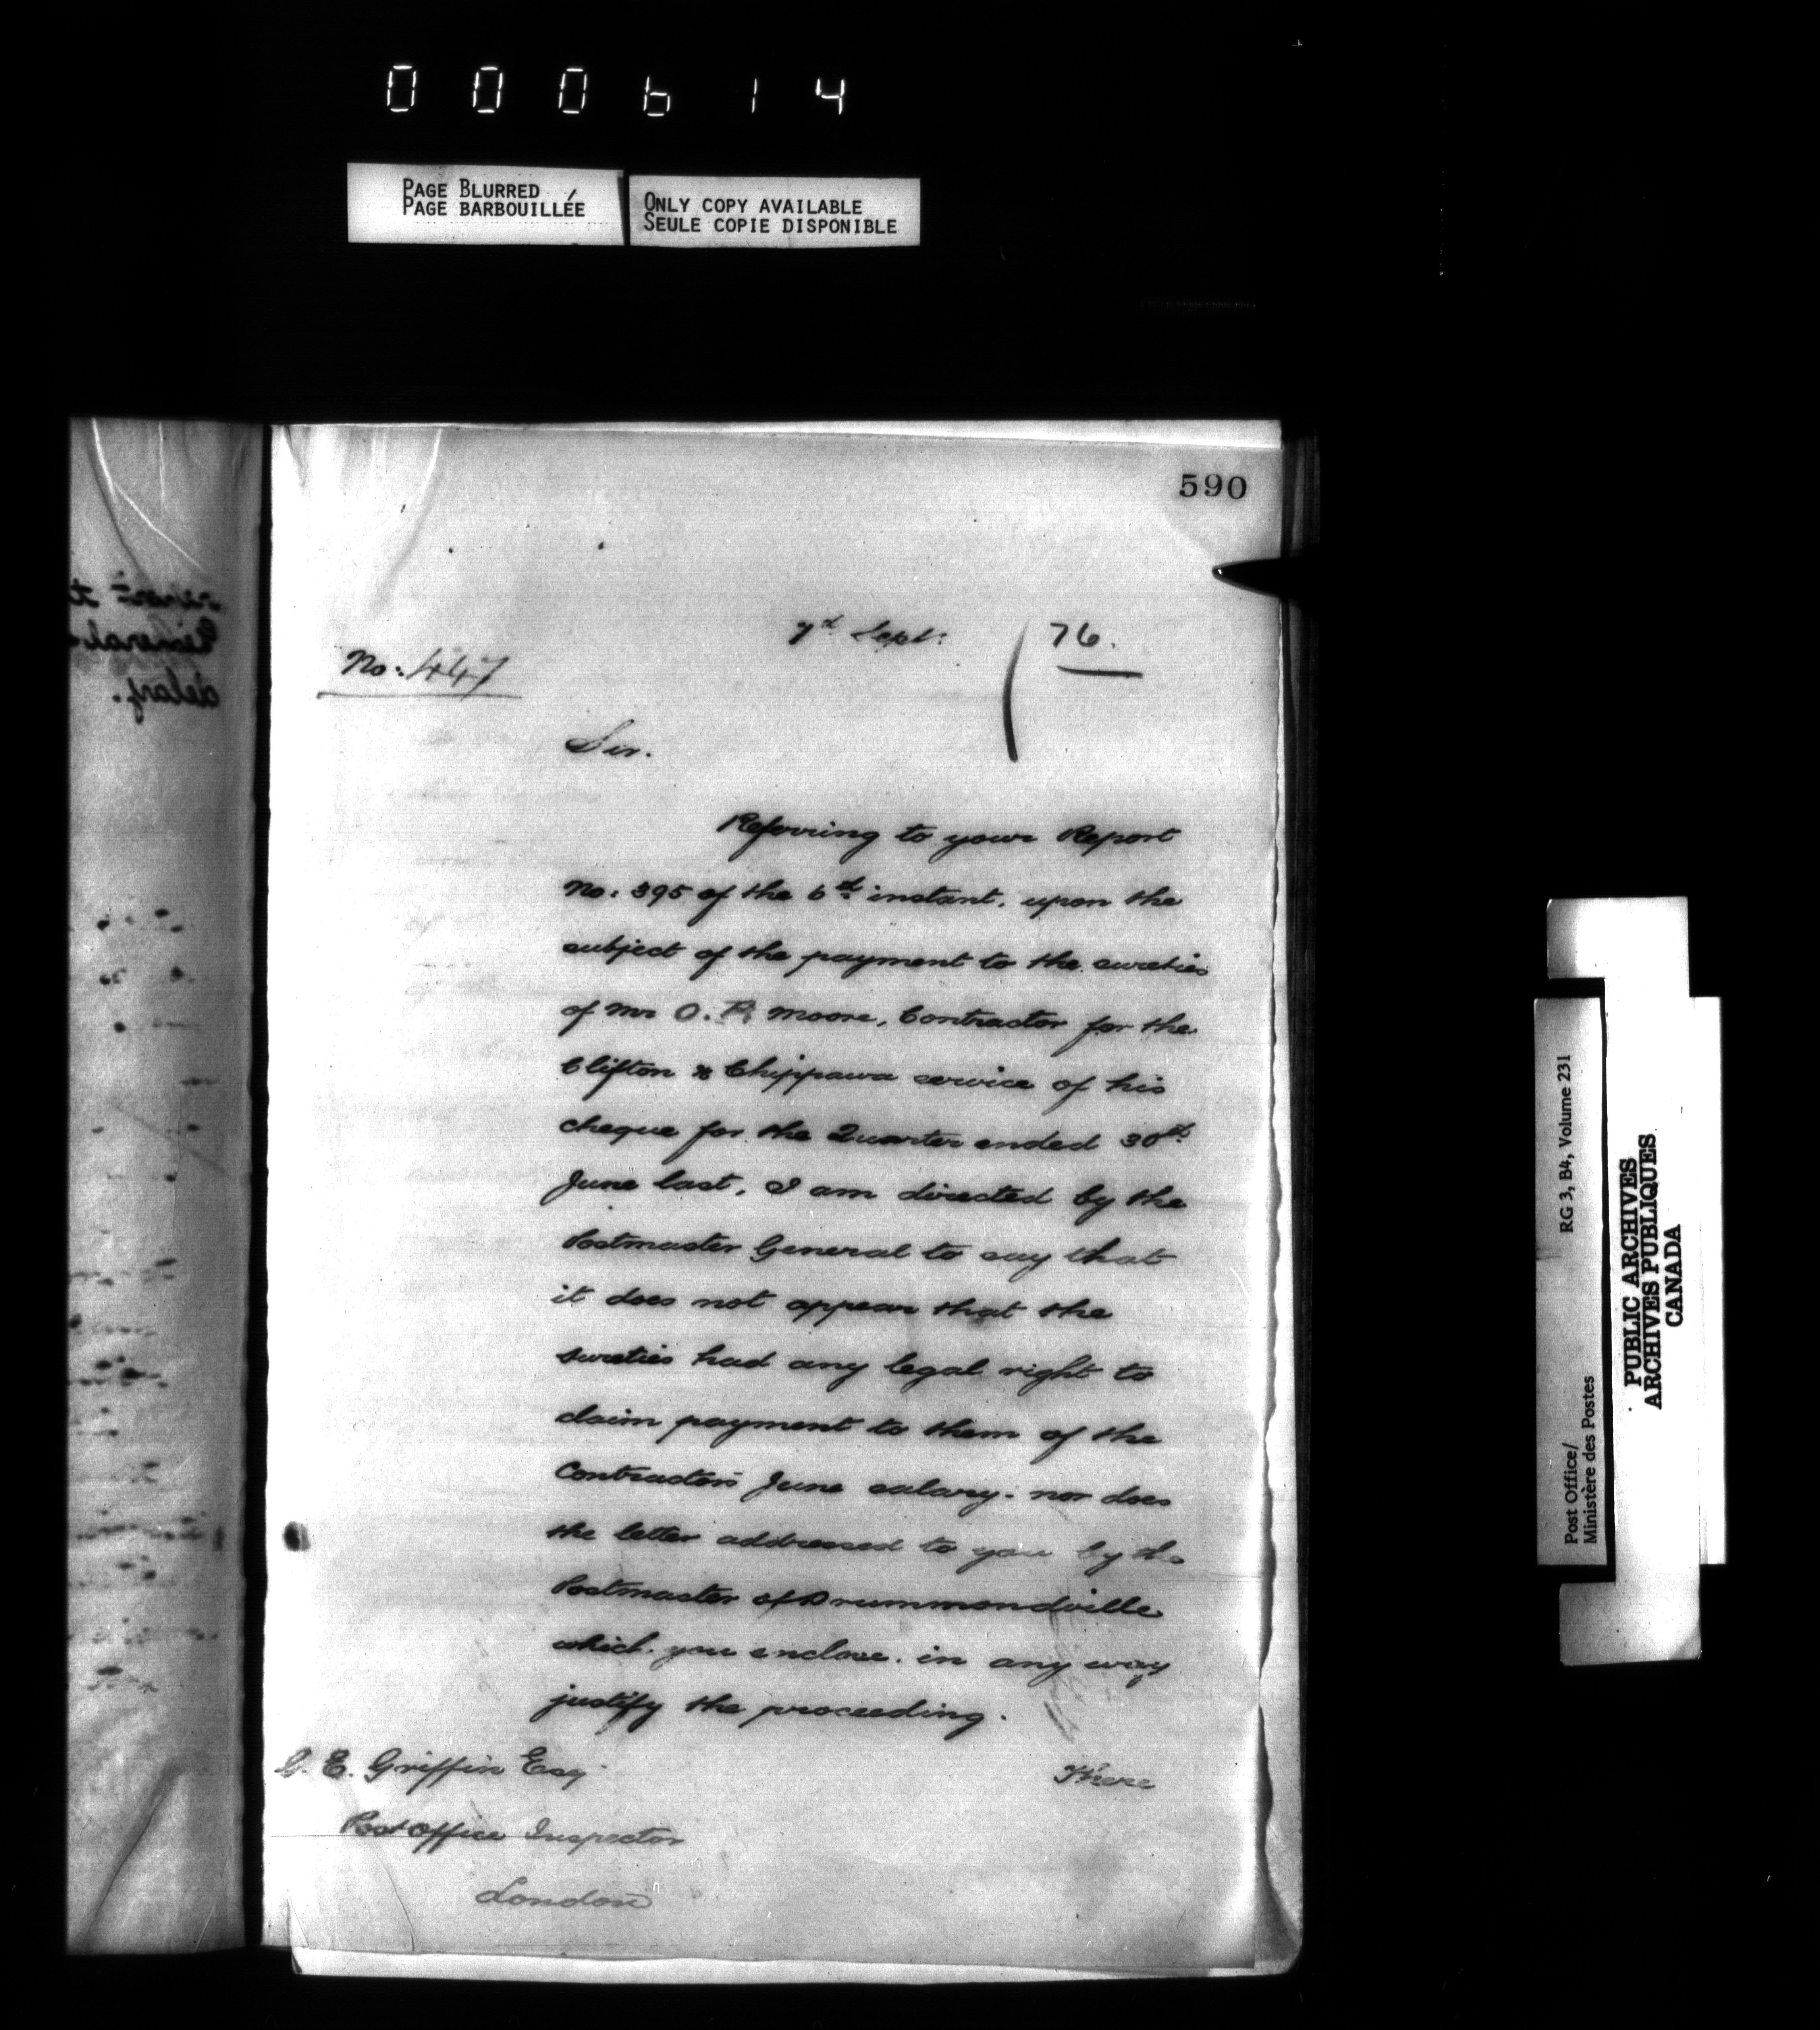 000614
PAGE BLURRED
PAGE BARBOUILLÉE
ONLY COPY AVAILABLE
SEULE COPIE DISPONIBLE
590
7th Sept: 76.
No: 447
Sir.
Referring to your Report
No: 395 of the 6th instant. upon the
subject of the payment to the sureties
of Mr O. R. Moore, Contractor for the
Clifton & Chippawa service of his
cheque for the Quarter ended 30th
June last, I am directed by the
Postmaster General to say that
it does not appear that the
sureties had any legal right to
claim payment to them of the
Contractor's June salary. nor does
the letter addressed to you by the
Postmaster of Drummondville
which you enclose. in any way
justify the proceeding.
G. E. Griffin Esq
There
Post Office Inspector
London
General
delay.
Post Office/
Ministère des Postes
RG 3, B4, Volume 231
PUBLIC ARCHIVES
ARCHIVES PUBLIQUES
CANADA